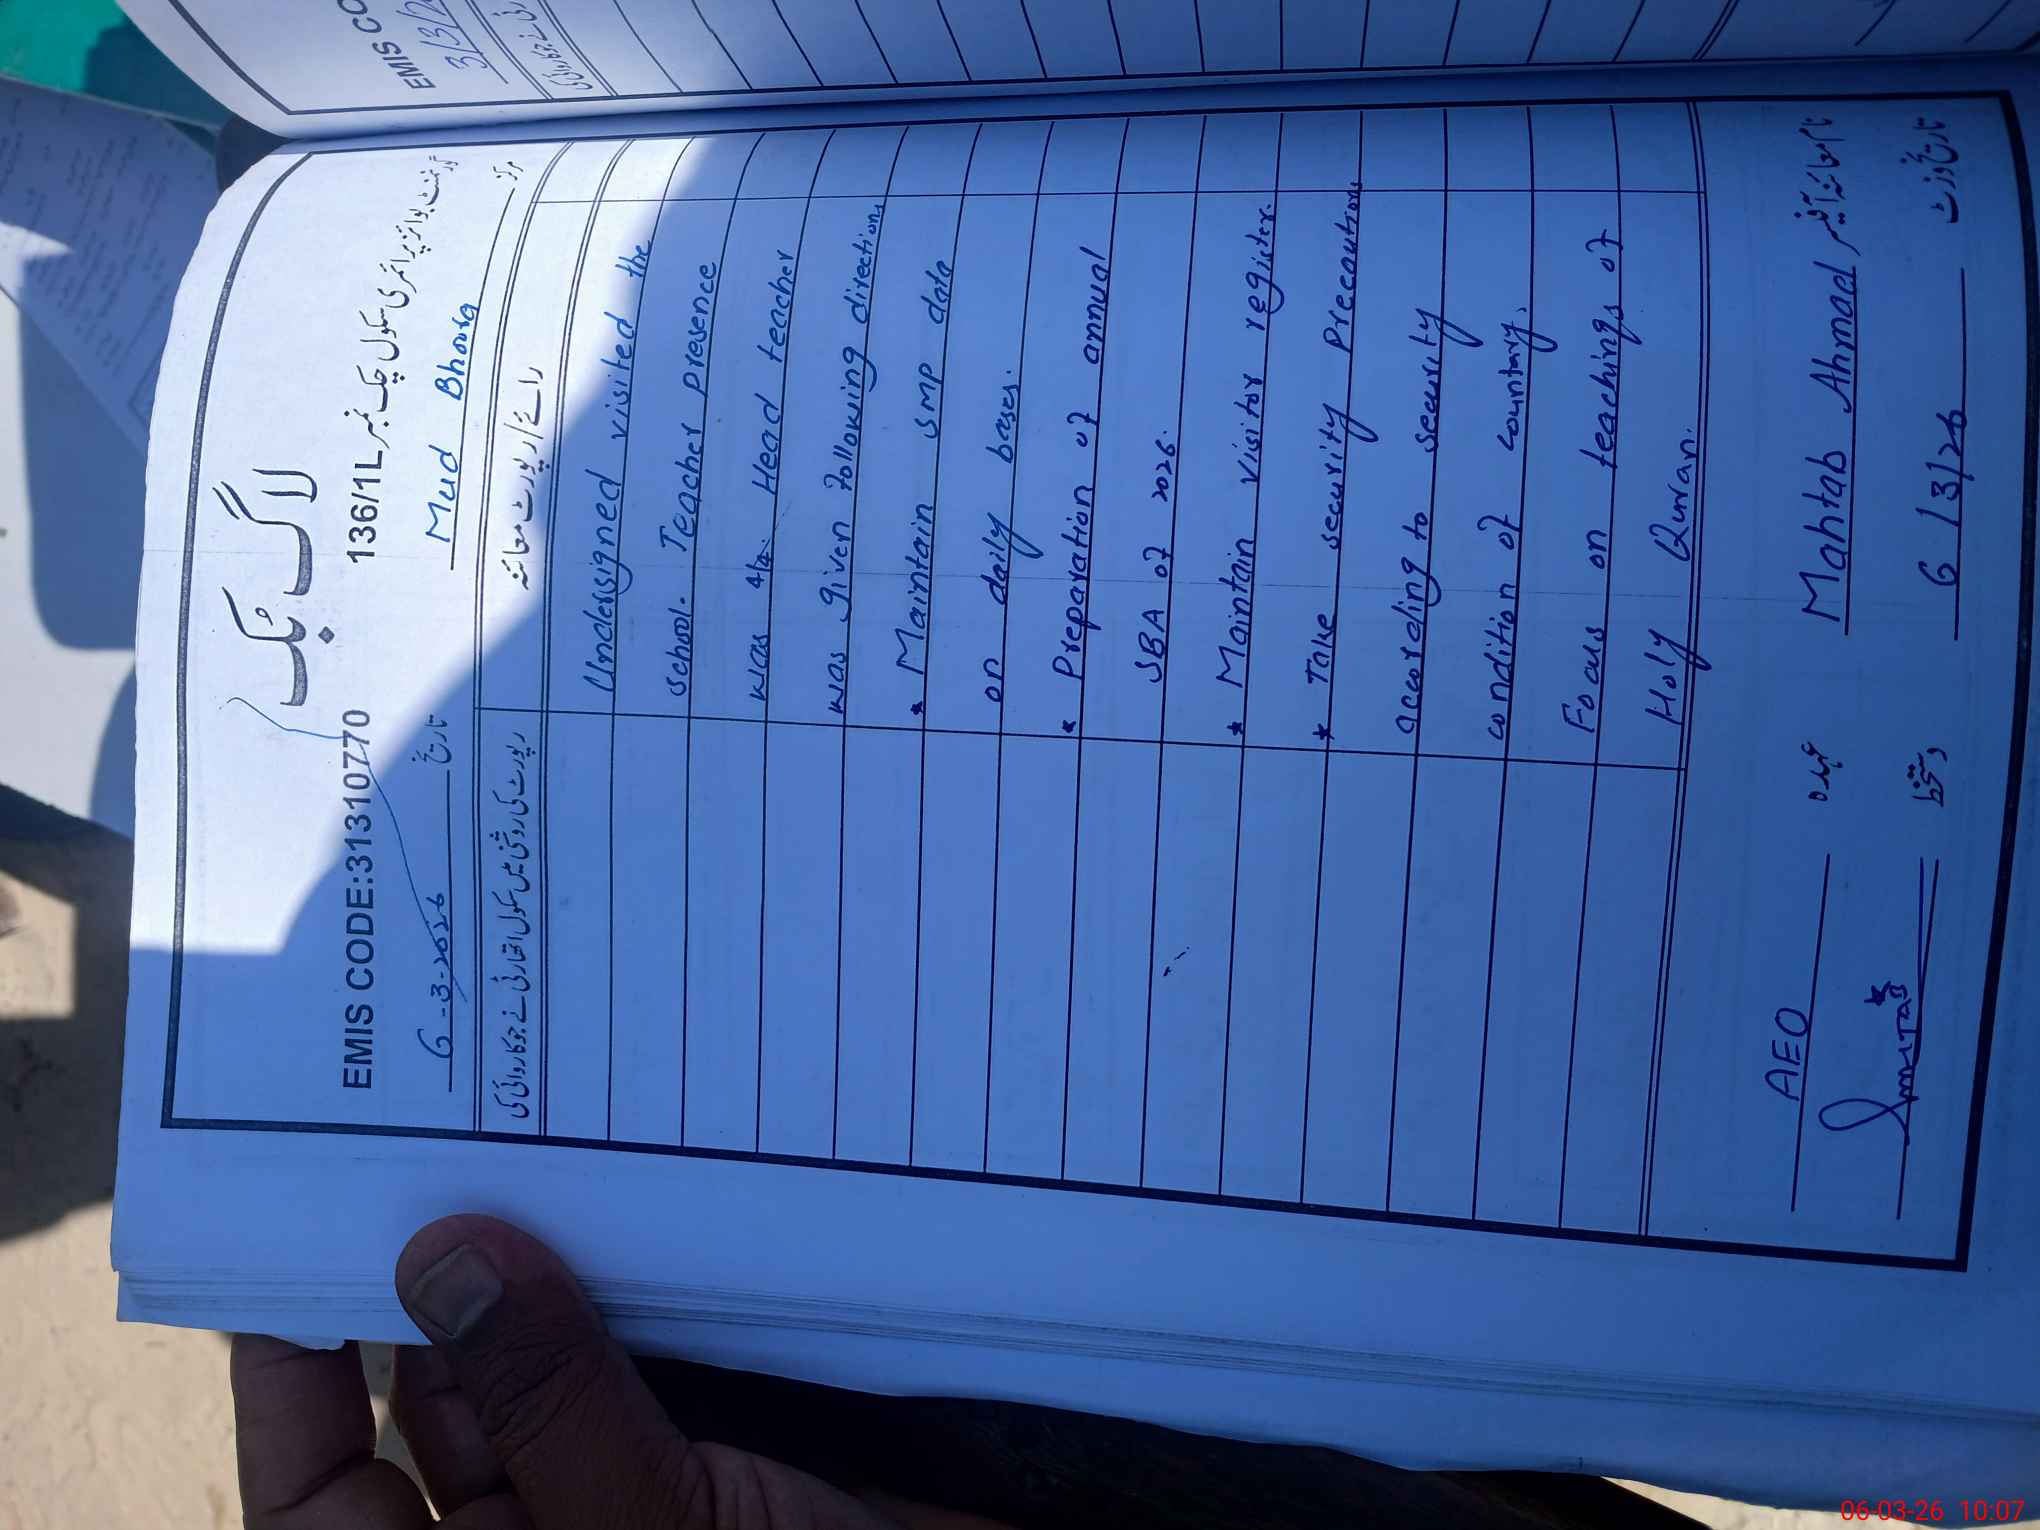 لاگ بک
EMIS CODE:31310770
گورنمنٹ بوائز پرائمری سکول چک نمبر 136/1L
مرکز Mud Bhoora
تاریخ 6-3-2026
رائے/رپورٹ معائنہ
رپورٹ کی روشنی میں سکول اتھارٹی نے جو کاروائی کی
Undersigned visited the
school. Teacher presence
was 4/4. Head teacher
was given following directions
* Maintain SMP data
on daily bases.
* Preparation of annual
SBA of 2026.
* Maintain visitor register.
* Take security Precautions
according to security
condition of countary.
Focus on teachings of
Holy Quran.
نام معائنہ آفیسر Mahtab Ahmad
عہدہ AEO
تاریخ وزٹ 6/3/26
دستخط
EMIS CO
3/3/2
06-03-26 10:07